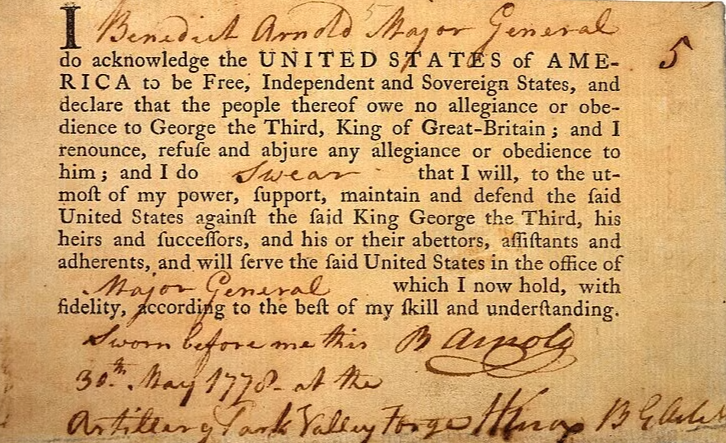 I Benedict Arnold Major General
do acknowledge the UNITED STATES of AME-
RICA to be Free, Independent and Sovereign States, and
declare that the people thereof owe no allegiance or obe-
dience to George the Third, King of Great-Britain; and I
renounce, refuſe and abjure any allegiance or obedience to
him; and I do Swear that I will, to the ut-
moſt of my power, ſupport, maintain and defend the ſaid
United States againſt the ſaid King George the Third, his
heirs and ſucceſſors, and his or their abettors, aſſiſtants and
adherents, and will ſerve the ſaid United States in the office of
Major General which I now hold, with
fidelity, according to the beſt of my ſkill and underſtanding.
Sworn before me this B Arnold
30th May 1778 - at the
Artillery Park Valley Forge HKnox B G Artil
5